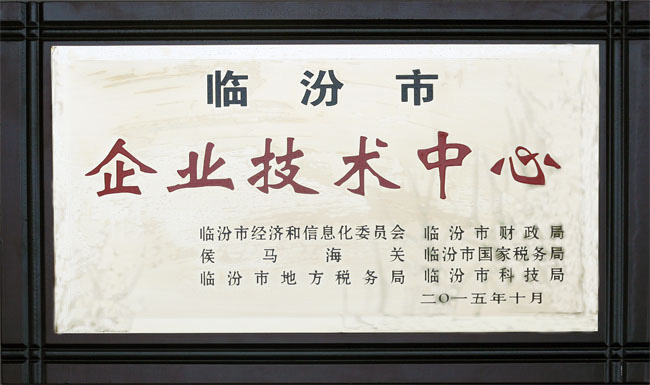 临汾市
企业技术中心
临汾市经济和信息化委员会 临汾市财政局
侯马海关 临汾市国家税务局
临汾市地方税务局 临汾市科技局
二〇一五年十月